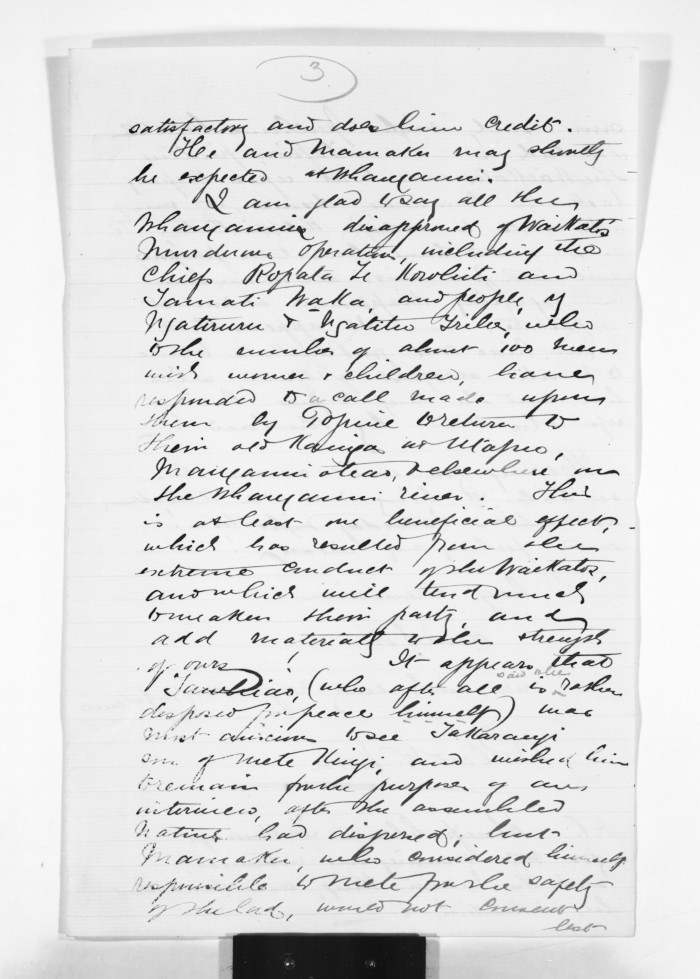 3
satisfactory and does him credit.
He and Mamaku may shortly
be expected at Whanganui.
I am glad to say all the
Whanganuis disapproved of Waikato's
murderous operations, including the
Chiefs Ropata Te Kowhiti and
Tamati Waka, and people, of
Ngatiruru & Ngatitu Tribe, who
to the number of about 100 men
with women & children, have
responded to a call made upon
them by Topine to return to
their old Kainga at Utapu,
Manganuioteao, & elsewhere on
the Whanganui river. This
is at least one beneficial effect,
which has resulted from the
extreme conduct of the Waikatos,
and which will tend much
to weaken their party, and
add materially to the strength
of ours! It appears that
said to be
Tawhiao, (who after all is rather
disposed for peace himself) was
most anxious to see Takarangi
son of Mete Kingi, and wished him
to remain for the purpose of an
interview, after the assembled
Natives had dispersed; but
Mamaku, who considered himself
responsible to Mete for the safety
of the lad, would not consent
lest